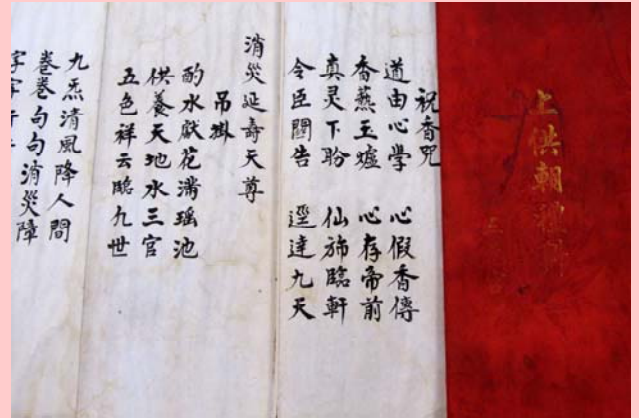 上供朝禮
祝香咒
道由心學 心假香傳
香爇玉爐 心存帝前
真灵下盼 仙斾臨軒
令臣關告 逕達九天
消災延壽天尊
吊掛
酌水獻花满瑶池
供養天地水三官
五色祥云臨九世
九炁清風降人間
卷卷句句消災障